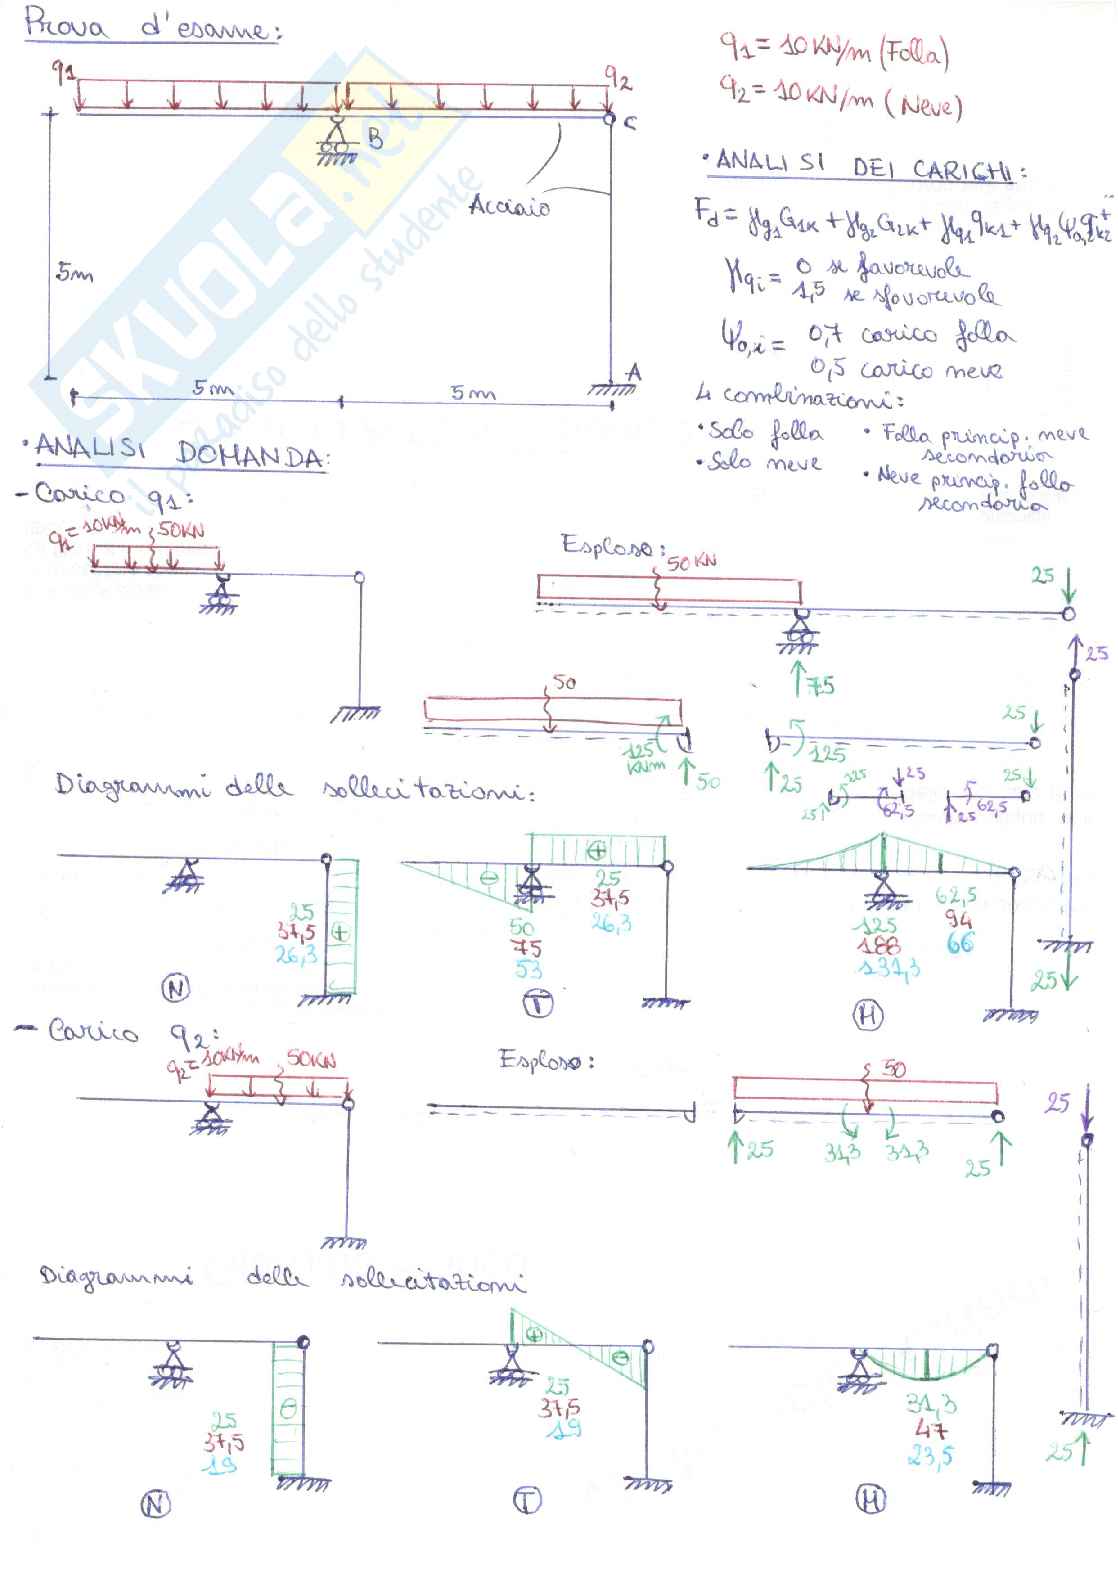 Prova d'esame:
q1 = 10 KN/m (Folla)
q2 = 10 KN/m (Neve)
q1
q2
B
C
Acciaio
5m
A
5m
5m
SKUOLA.net
il paradiso dello studente
· ANALISI DEI CARICHI:
Fd = γg1 G1k + γg2 G2k + γq1 qk1 + γq2 ψ0,2 qk2 + ..
γqi = 0 se favorevole
1,5 se sfavorevole
ψ0,i = 0,7 carico folla
0,5 carico neve
4 combinazioni:
· Solo folla
· Solo neve
· Folla princip. neve
secondaria
· Neve princip. folla
secondaria
· ANALISI DOMANDA:
- Carico q1:
q1=10KN/m
50KN
Esploso:
50 KN
25
75
25
50
125
KNm
50
25
125
25
25
125
62,5
25
25
62,5
25
25
Diagrammi delle sollecitazioni:
25
37,5
26,3
+
N
⊖
+
25
37,5
26,3
50
75
53
T
125
188
131,3
62,5
94
66
M
- Carico q2:
q2=10KN/m
50KN
Esploso:
50
25
31,3
31,3
25
25
25
Diagrammi delle sollecitazioni
25
37,5
19
⊖
N
+
⊖
25
37,5
19
T
31,3
47
23,5
M